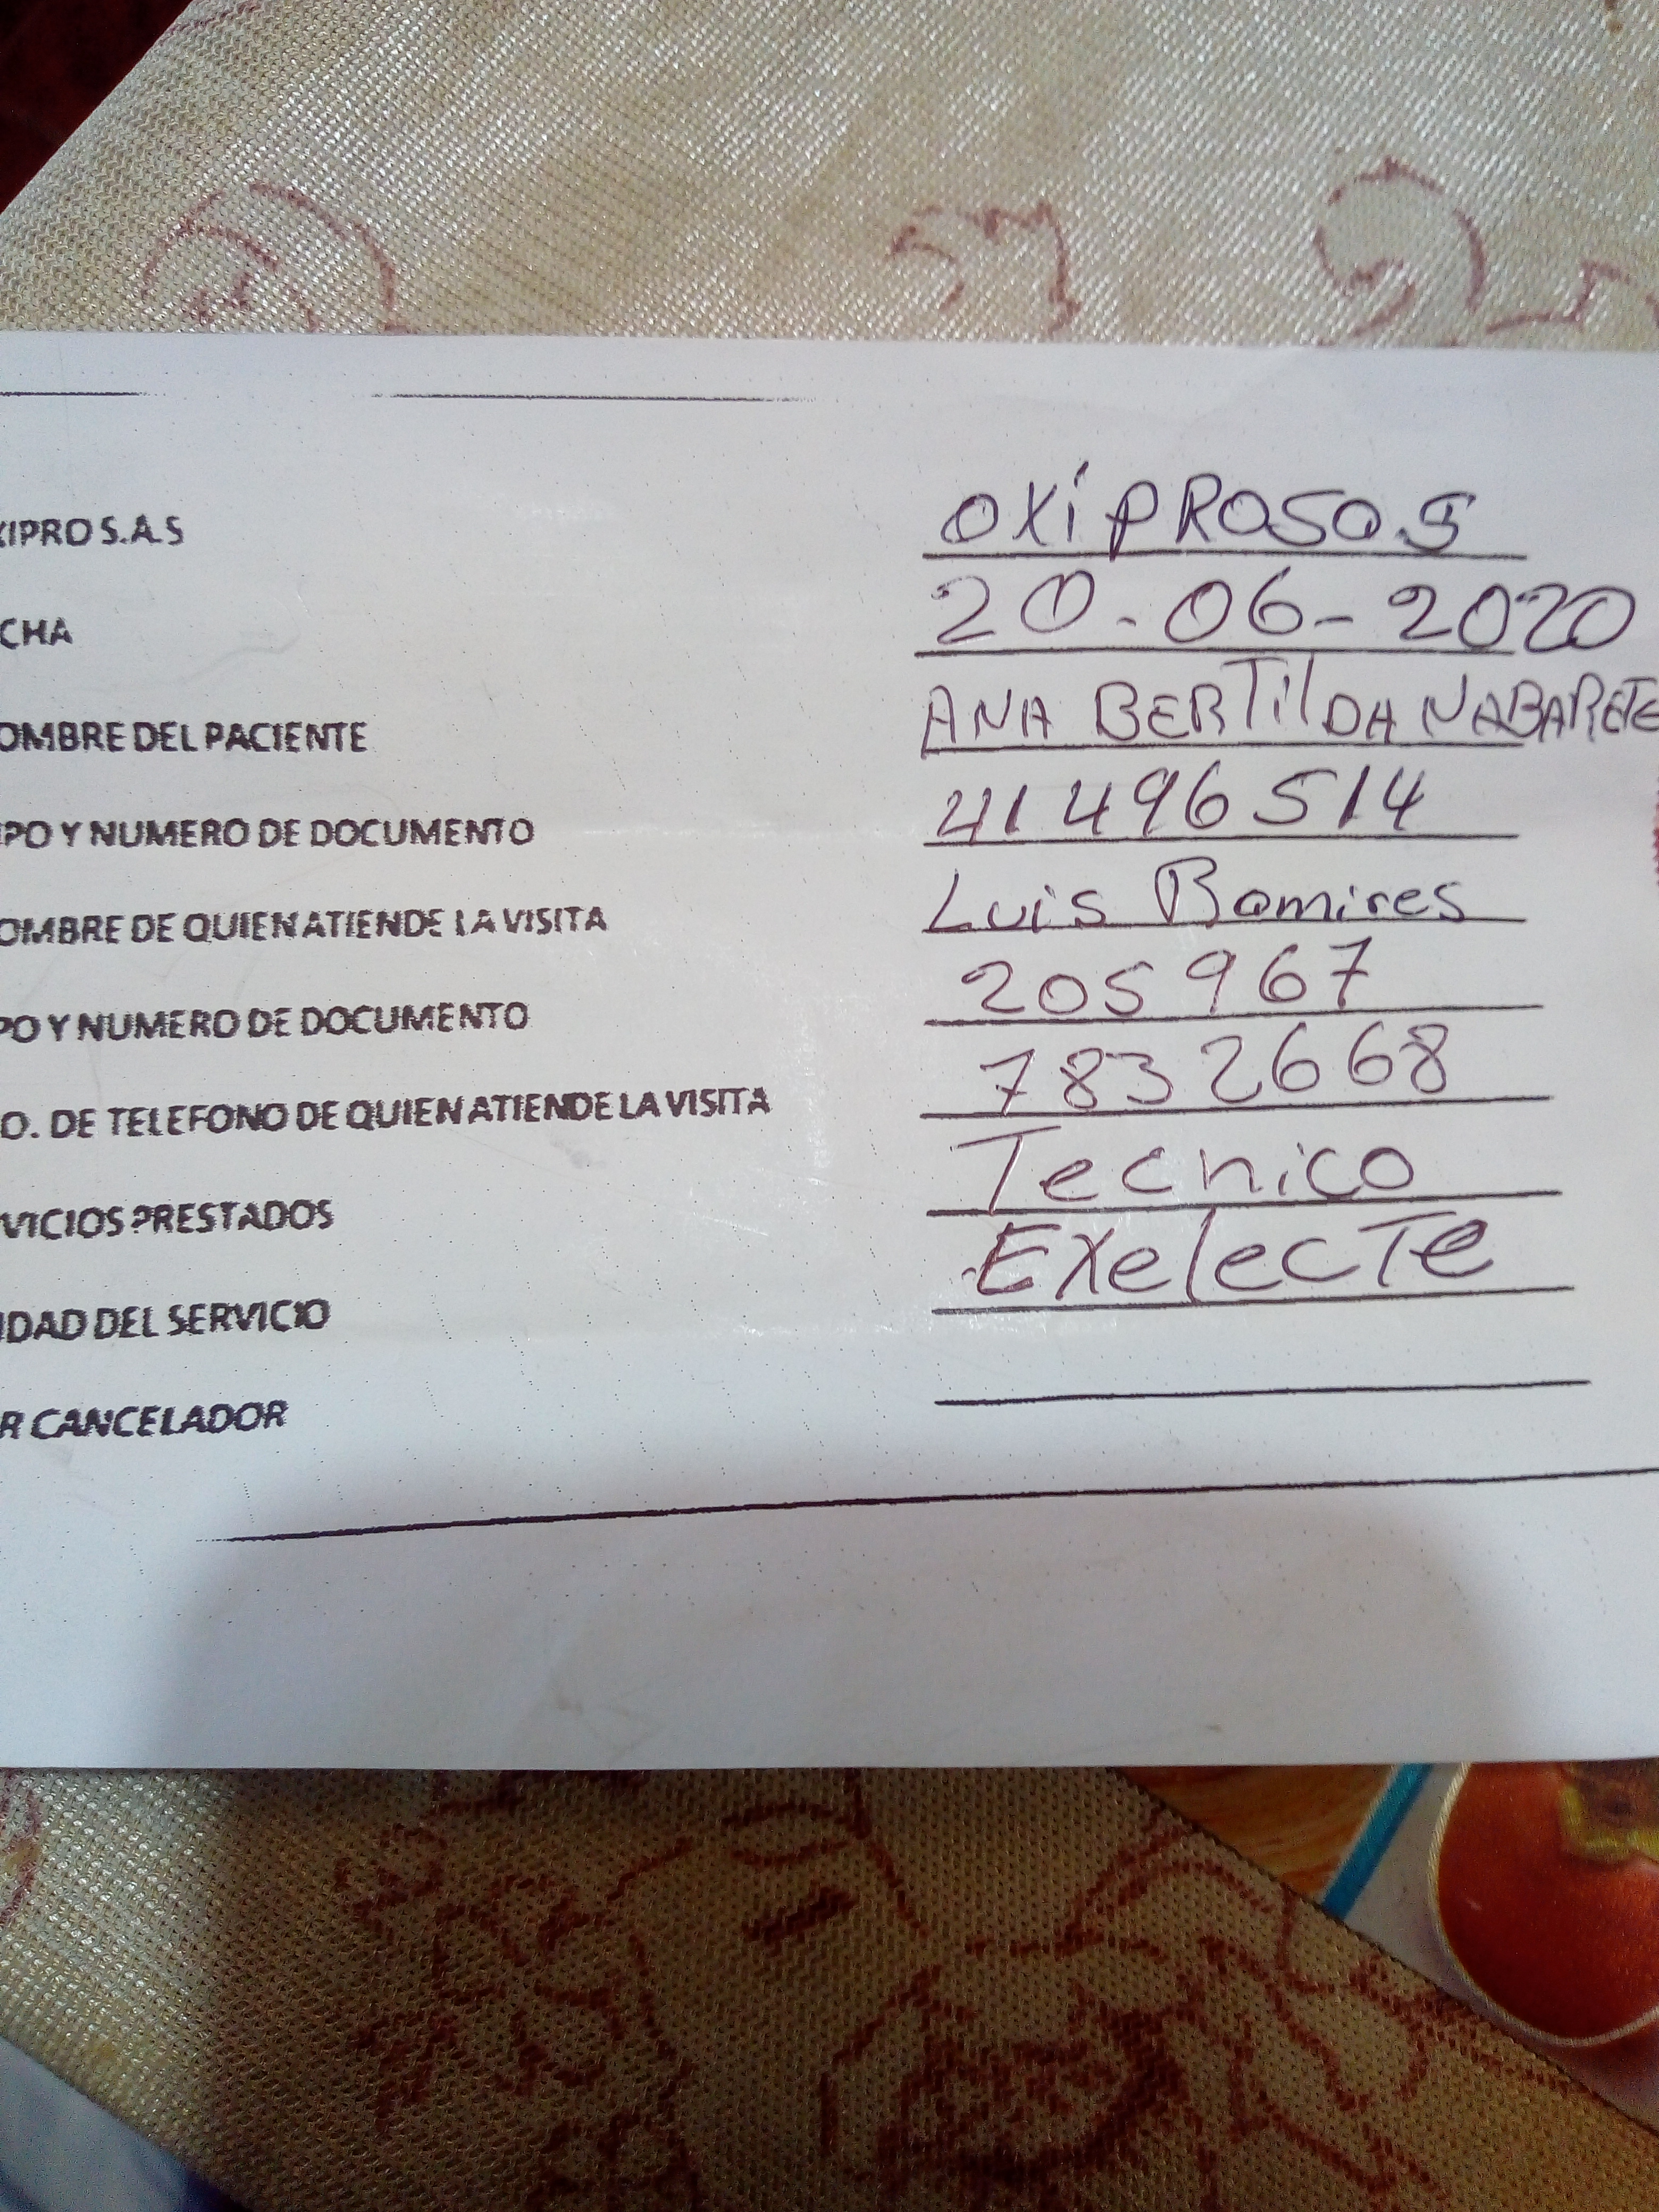 XIPRO S.A.S OXIPROSAS
CHA 20-06-2020
OMBRE DEL PACIENTE ANA BERTilDA NABARETE
PO Y NUMERO DE DOCUMENTO 41496514
OMBRE DE QUIEN ATIENDE LA VISITA Luis Ramires
PO Y NUMERO DE DOCUMENTO 205967
O. DE TELEFONO DE QUIEN ATIENDE LA VISITA 7832668
VICIOS PRESTADOS Tecnico
IDAD DEL SERVICIO ExelecTe
R CANCELADOR